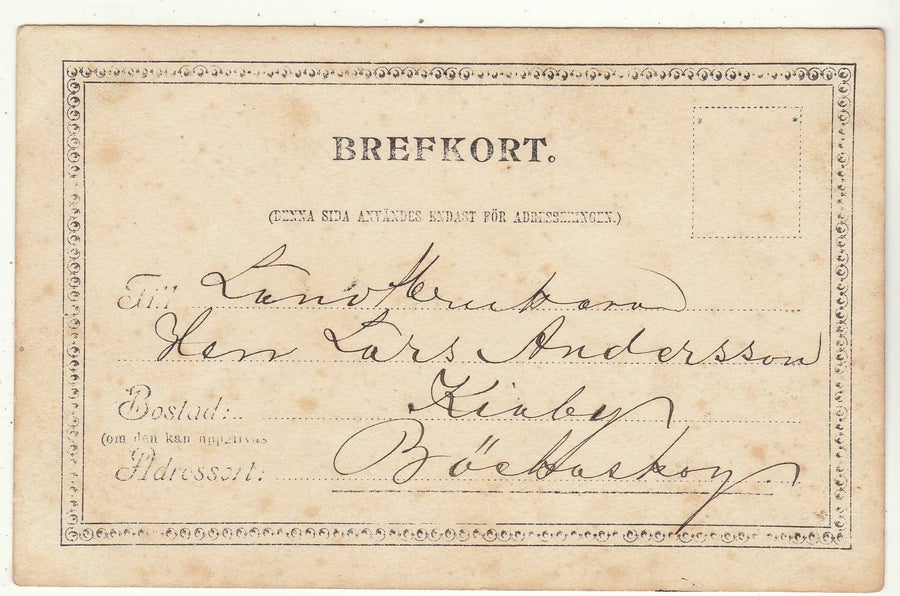 BREFKORT.
(DENNA SIDA ANVÄNDES ENDAST FÖR ADRESSERINGEN.)
Till Landtbrukaren
Herr Lars Andersson
Bostad: Kiaby
(om den kan uppgifvas
Adressort: Bäckaskog